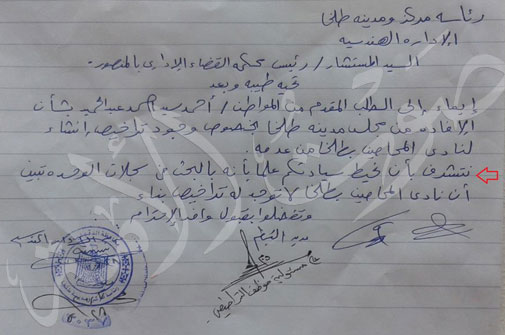 رئاسة مركز ومدينه طلخا
الإداره الهندسيه
السيد المستشار / رئيس محكمه القضاء الإدارى بالمنصوره
تحيه طيبه وبعد
إيماء إلى الطلب المقدم من المواطن / أحمد سيد أحمد عبد الحميد بشأن
الإفاده من مجلس مدينه طلخا بخصوص وجود تراخيص إنشاء
لنادى المحامين بطلخا من عدمه.
نتشرف بأن نحيط سيادتكم علما بأنه بالبحث فى سجلات الوحده تبين
أن نادى المحامين بطلخا لا توجد له تراخيص بناء
وتفضلوا بقبول وافر الإحترام
مدير التنظيم
صوت الأمة